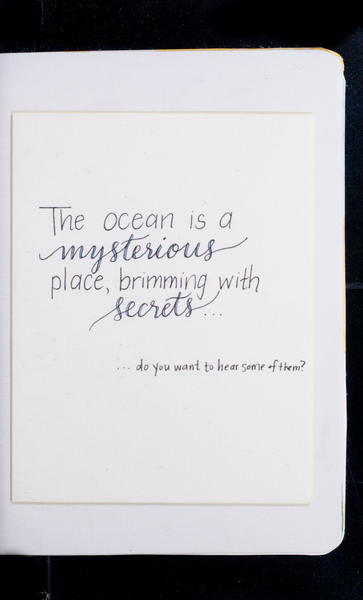 The ocean is a
mysterious
place, brimming with
secrets...
...do you want to hear some of them?